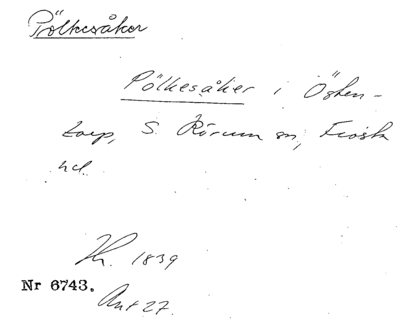 Pölkesåker
Pölkesåker i Östen-
torp, S. Rörum sn, Frosta
hd.
1839
Nr 6743.
Ant 27.